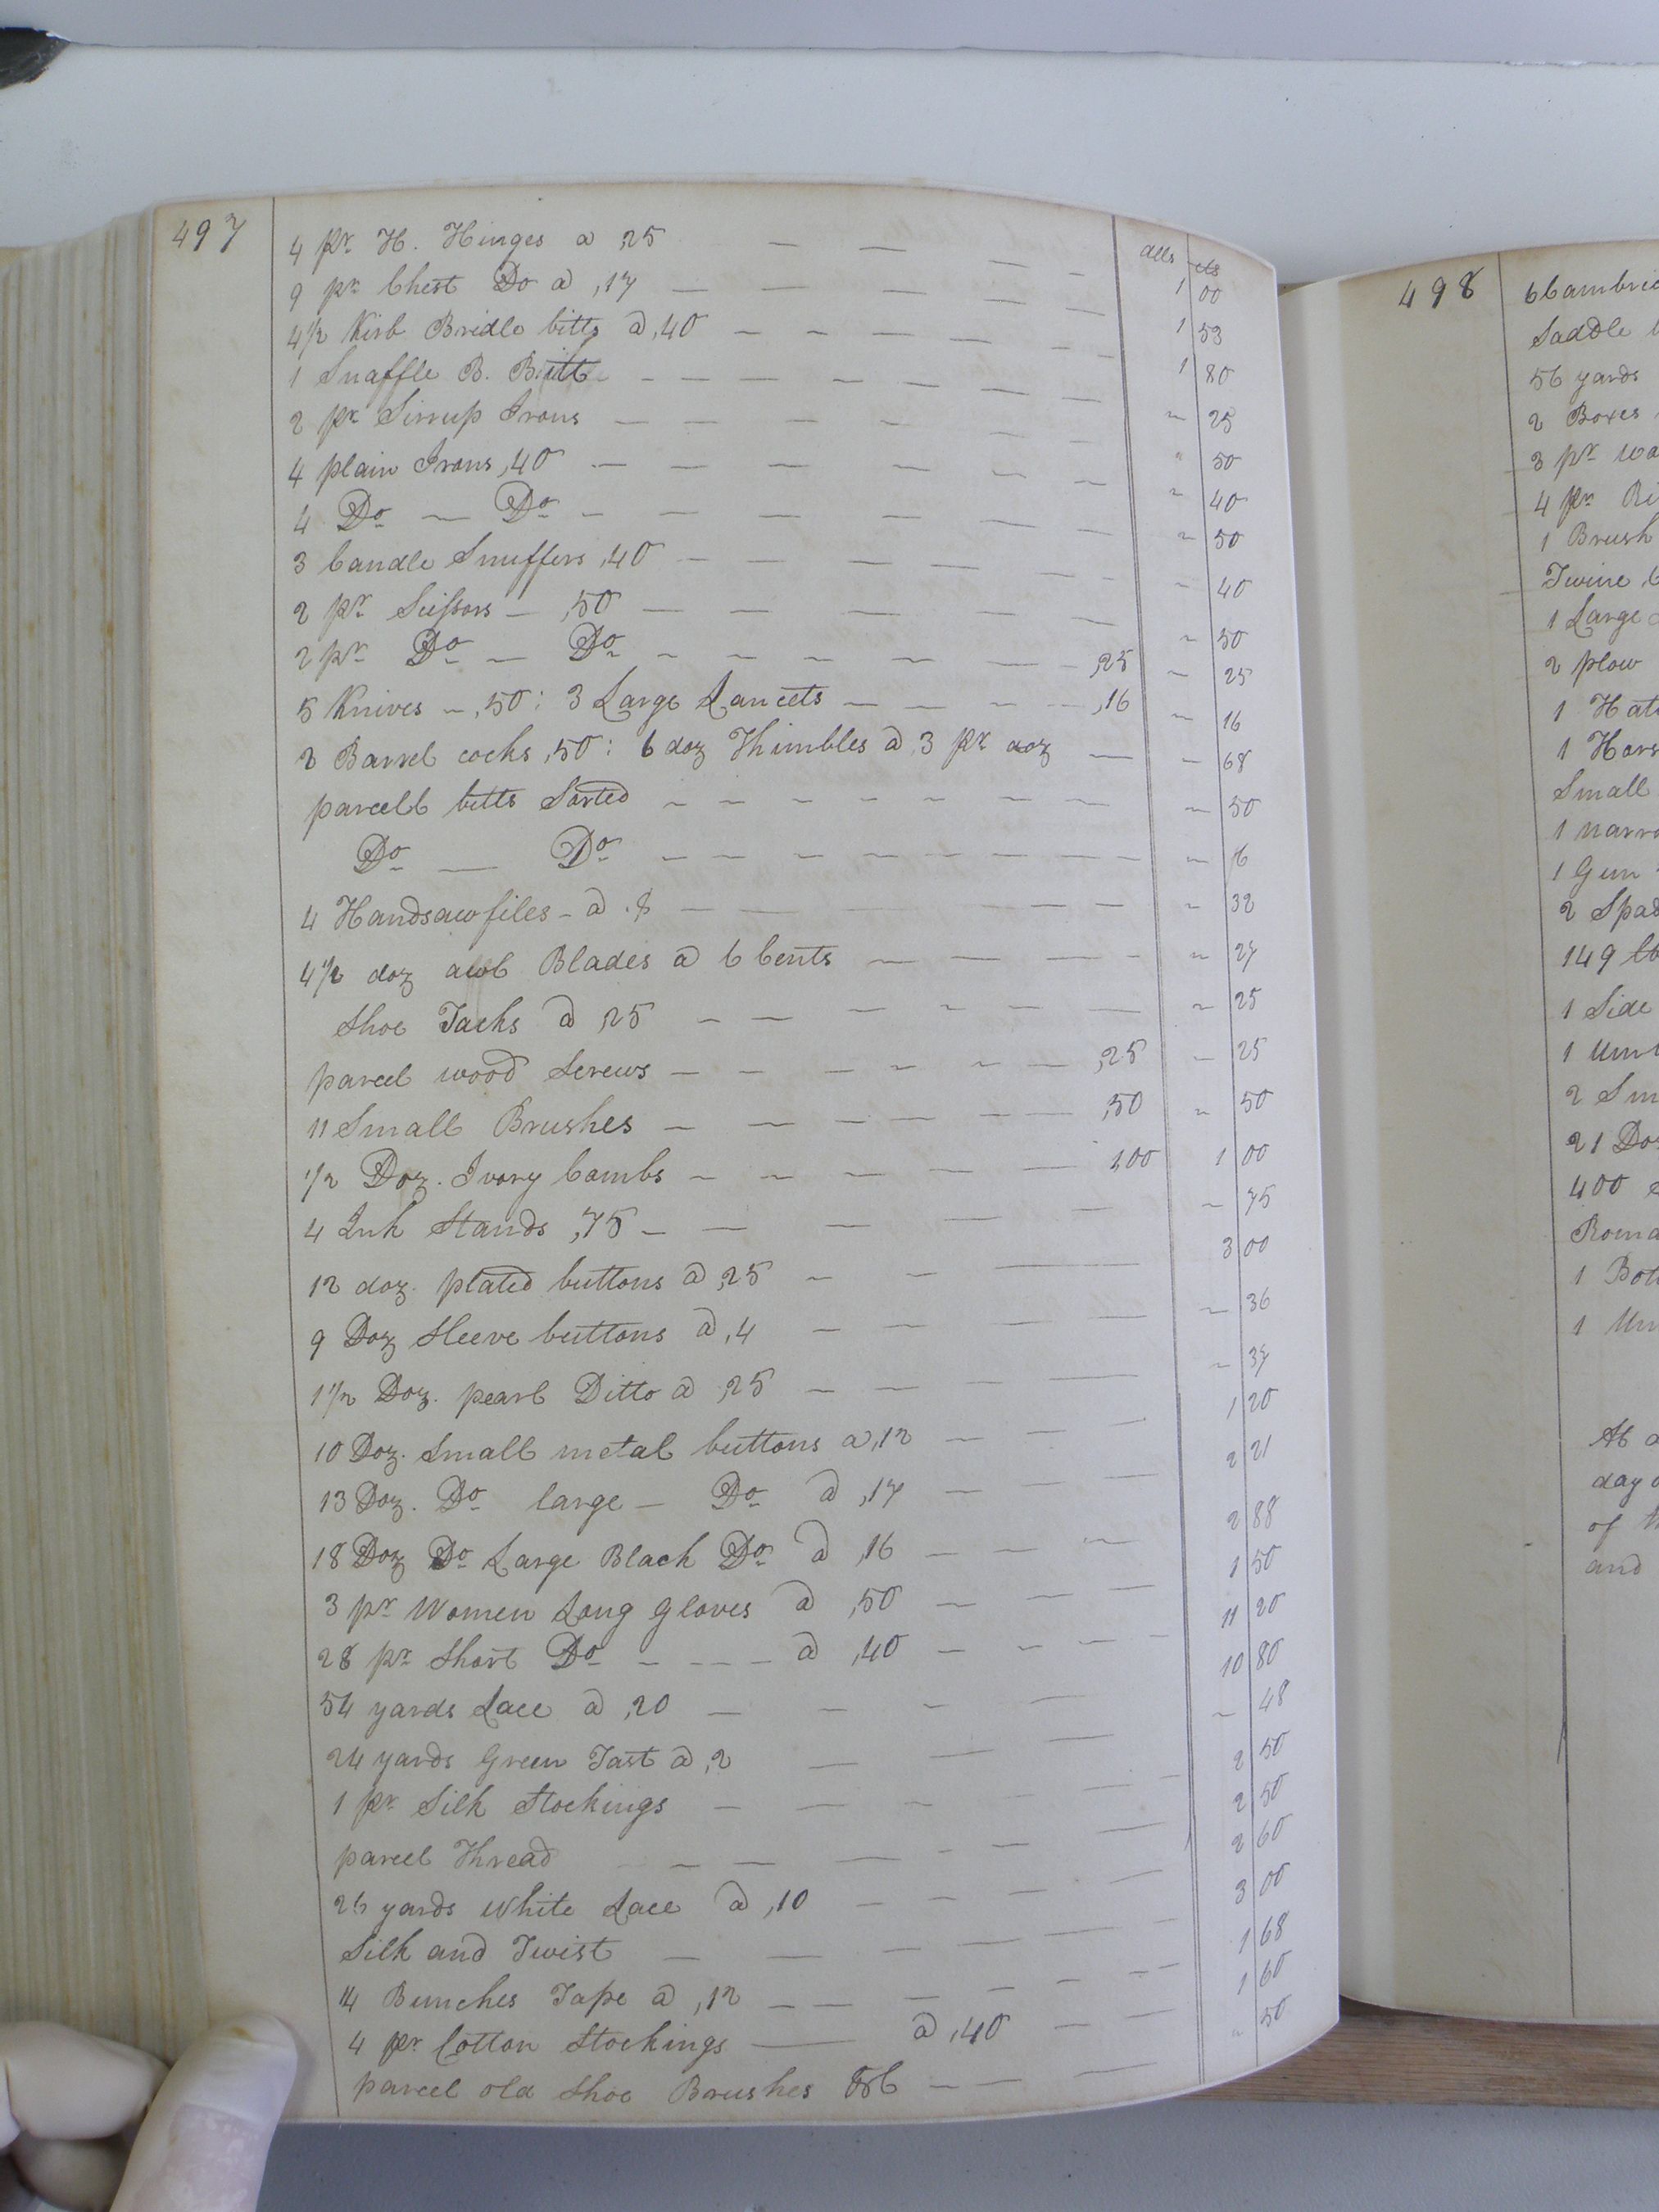 497
dlls cts
4 pr H. Hinges a ,25 — — — — 1 00
9 pr Chest Do a ,17 — — — — 1 53
4 1/2 Kirb Bridle bitts a ,40 — — — — 1 80
1 Snaffle B. Bitt — — — — " 25
2 pr Sirrup Irons — — — — " 50
4 plain Irons ,40 — — — — " 40
4 Do — Do — — — — " 50
3 Candle Snuffers ,40 — — — — " 40
2 pr Scissors — ,50 — — — — " 50
2 pr Do — Do — — — — ,25 " 25
5 Knives — ,50 : 3 Large Lancets — — — ,16 " 16
2 Barrel cocks ,50 : 6 doz Thimbles a ,3 pr doz — " 68
parcell bitts Sorted — — — — " 50
Do — Do — — — — " 16
4 Handsaw files - a .8 — — — — " 32
4 1/2 doz awl Blades a 6 Cents — — — — " 27
Shoe Tacks a ,25 — — — — " 25
parcel wood Screws — — — — ,25 " 25
11 Small Brushes — — — — ,50 " 50
1/2 Doz. Ivory Combs — — — — 100 1 00
4 Ink Stands ,75 — — — — " 75
12 doz. plated buttons a ,25 — — — 3 00
9 Doz Sleeve buttons a ,4 — — — — " 36
1 1/2 Doz. pearl Ditto a ,25 — — — — " 37
10 Doz. Small metal buttons a ,12 — — — 1 20
13 Doz. Do large — Do a ,17 — — 2 21
18 Doz Do Large Black Do a ,16 — — — 2 88
3 pr Women Long gloves a ,50 — — — 1 50
28 pr Short Do - - - - a ,40 — — — — 11 20
54 yards Lace a ,20 — — — — 10 80
24 yards Green Tast a ,2 — — — " 48
1 pr Silk Stockings — — — — 2 50
parcel Thread — — — — 2 50
26 yards White Lace a ,10 — — — — 2 60
Silk and Twist — — — — 3 00
14 Bunches Tape a ,12 — — — — 1 68
4 pr Cotton Stockings — a ,40 — — 1 60
parcel old Shoe Brushes — — — " 50
498
6 Cambric
Saddle
56 yards
2 Boxes
3 pr
4 pr
1 Brush
Twine
1 Large
2 plow
1
1
Small
1
1 Gun
2
149
1 Side
1
2
21
400
1
1
day
of
and